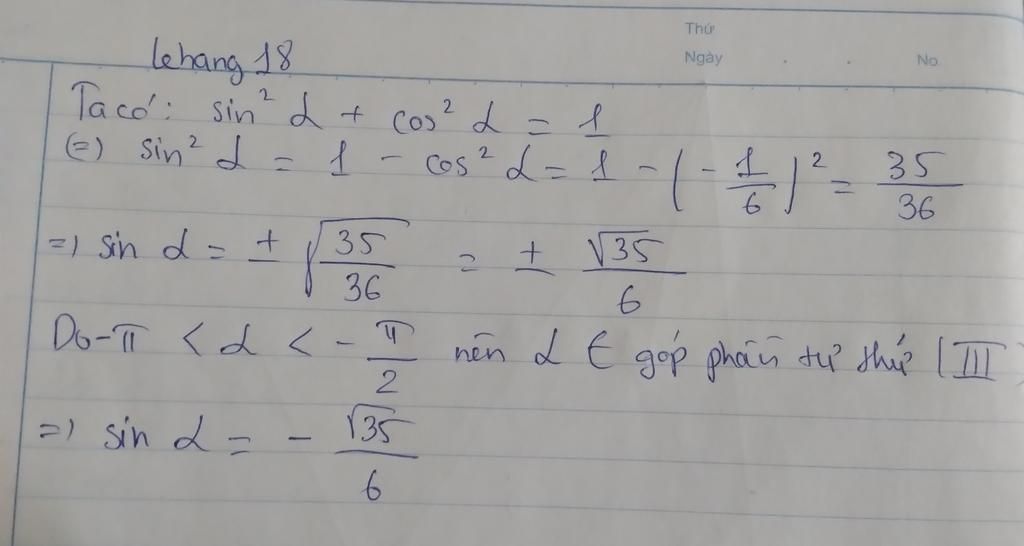 Thứ
Ngày . . No
lehang 18
Ta có: sin² α + cos² α = 1
(=) sin² α = 1 - cos² α = 1 - (-1/6)² = 35/36
=) sin α = ± √(35/36) = ± √35/6
Do -π < α < -π/2 nên α ∈ góp phần tư thứ (III)
=) sin α = - √35/6